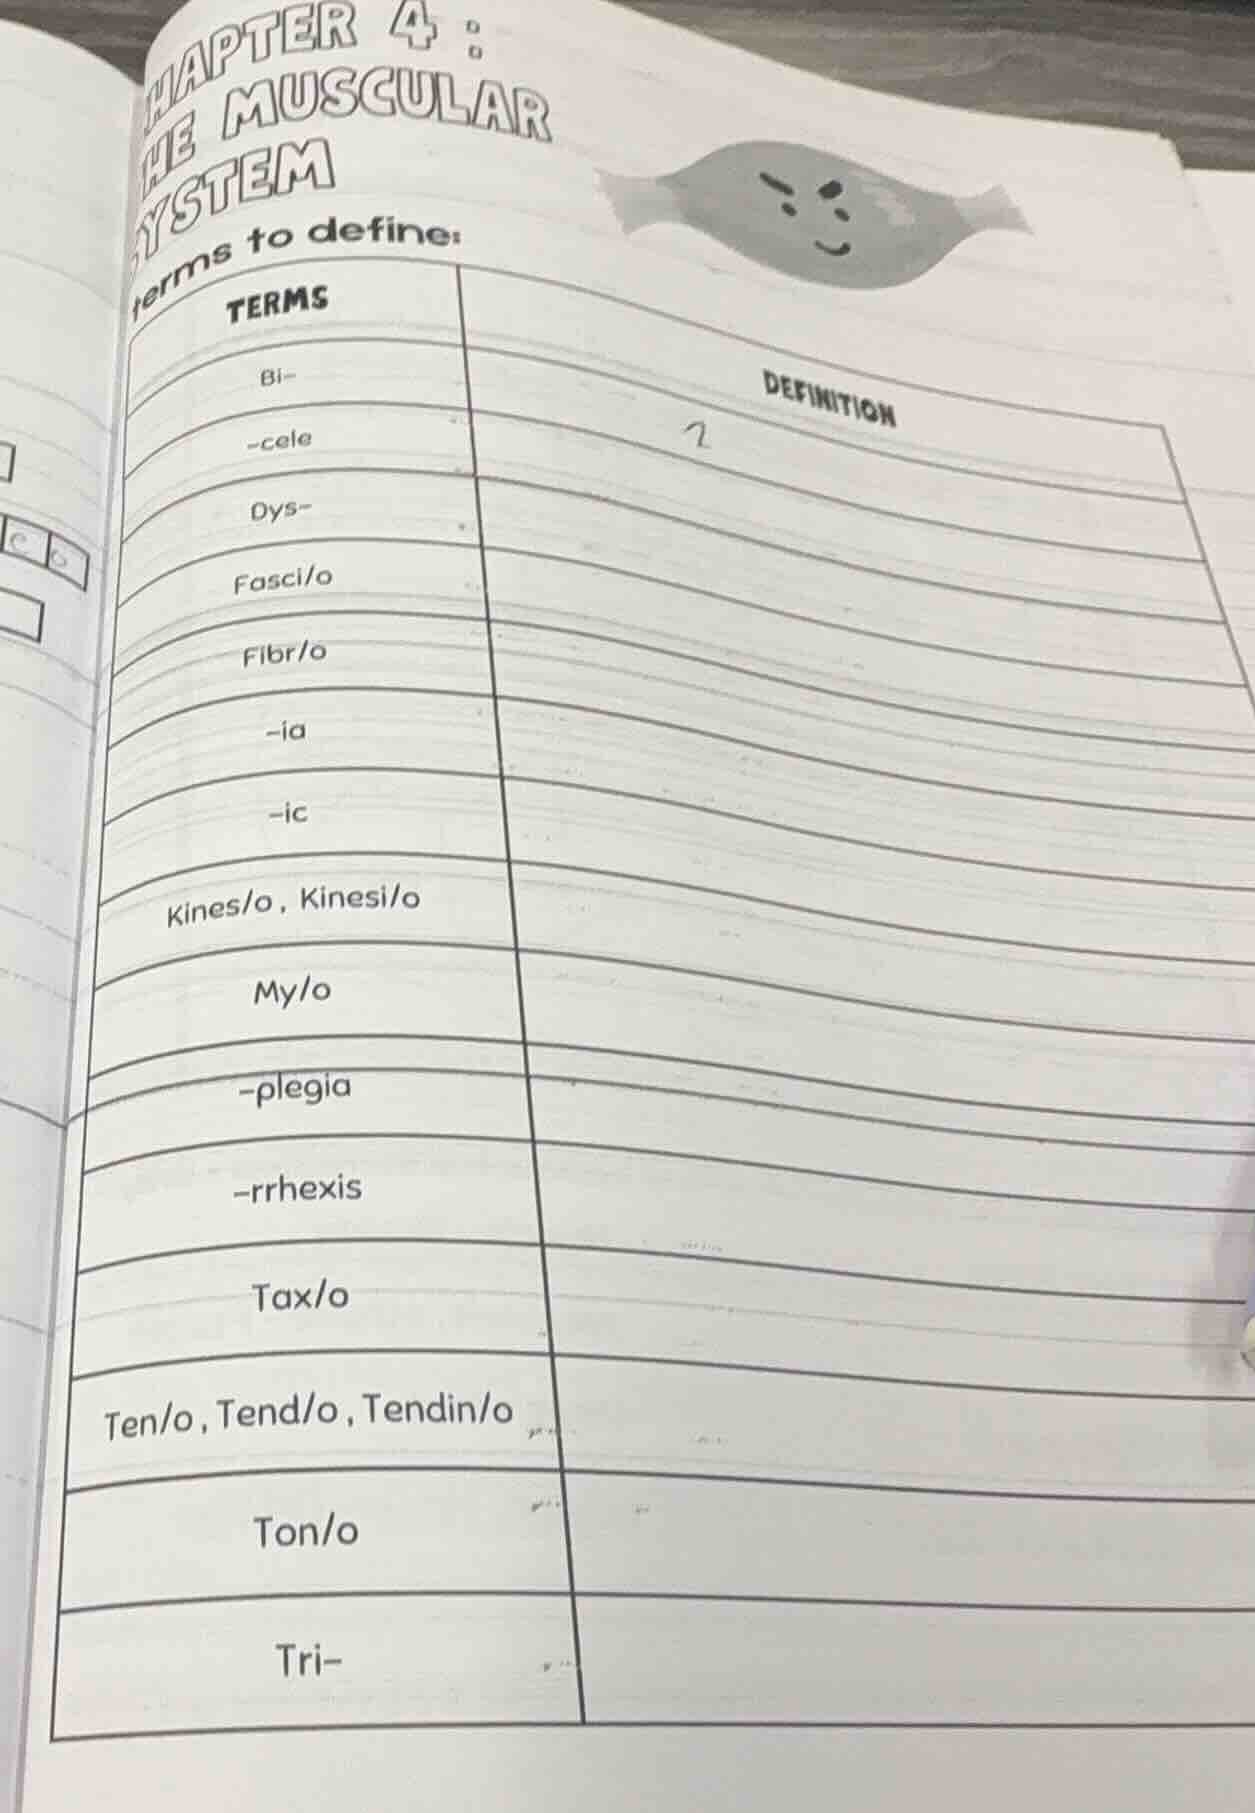 HAPTER 4 :
HE MUSCULAR
SYSTEM
terms to define:
TERMS
DEFINITION
Bi-
2
-cele
Dys-
Fasci/o
Fibr/o
-ia
-ic
Kines/o , Kinesi/o
My/o
-plegia
-rrhexis
Tax/o
Ten/o , Tend/o , Tendin/o
Ton/o
Tri-